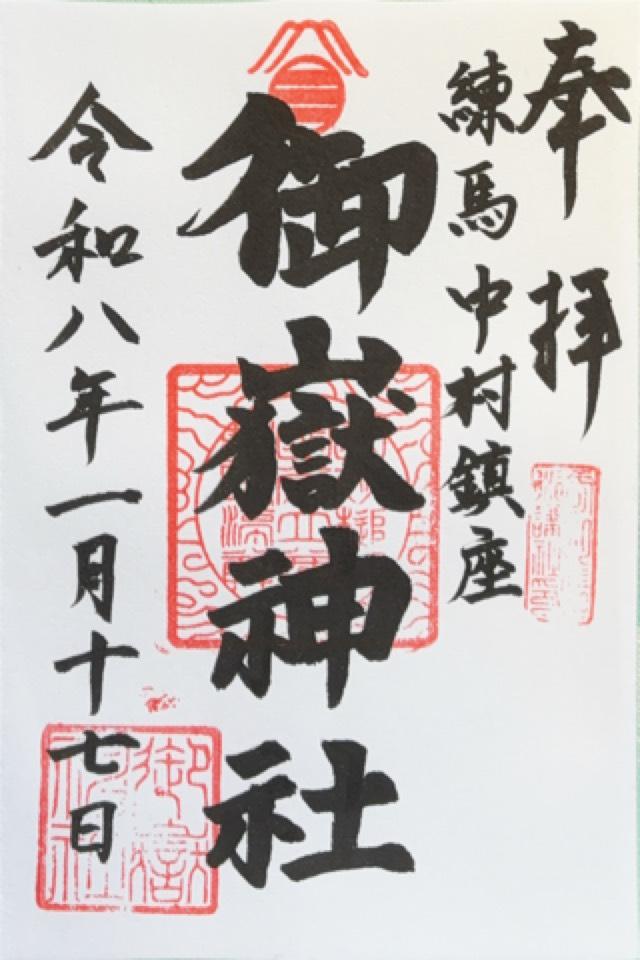 奉拝
練馬中村鎮座
御嶽神社
令和八年一月十七日
御嶽神社